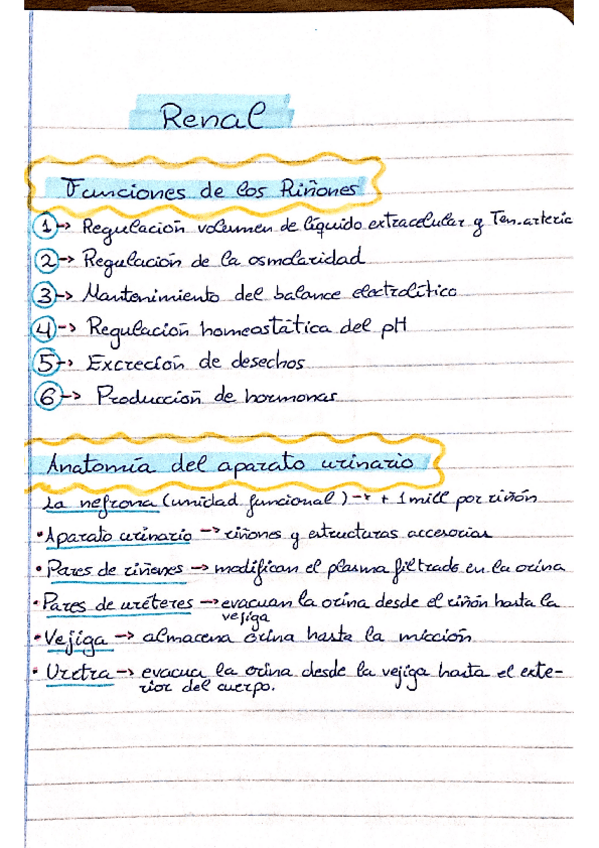 Renal
Funciones de los Riñones
1 -> Regulación volumen de líquido extracelular y Ten.arteria
2 -> Regulación de la osmolaridad
3 -> Mantenimiento del balance electrolítico
4 -> Regulación homeostática del pH
5 -> Excreción de desechos
6 -> Producción de hormonas
Anatomía del aparato urinario
La nefrona (unidad funcional) -> + 1 mill por riñón
• Aparato urinario -> riñones y estructuras accesorias
• Pares de riñones -> modifican el plasma filtrado en la orina
• Pares de uréteres -> evacuan la orina desde el riñón hasta la
vejiga
• Vejiga -> almacena orina hasta la micción
• Uretra -> evacua la orina desde la vejiga hasta el exte-
rior del cuerpo.